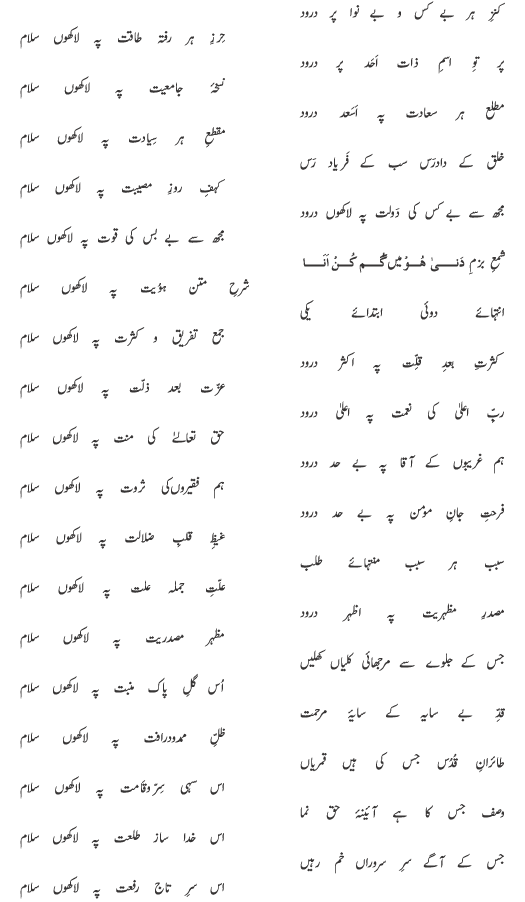 کنزِ ہر بے کس و بے نوا پر درود
حِرزِ ہر رفتۂ طاقت پہ لاکھوں سلام
پر توِ اسمِ ذات اَحَد پر درود
نسخۂ جامعیت پہ لاکھوں سلام
مطلعِ ہر سعادت پہ اَسَعد درود
مقطعِ ہر سِیادت پہ لاکھوں سلام
خلق کے دادرَس سب کے فَریاد رَس
کہفِ روزِ مصیبت پہ لاکھوں سلام
مجھ سے بے کس کی دَولت پہ لاکھوں درود
مجھ سے بے بس کی قوت پہ لاکھوں سلام
شمعِ بزمِ دَنٰی ھُوْ میں گُم کُنْ اَنَا
شرحِ متن ہوّیت پہ لاکھوں سلام
انتہائے دوئی ابتدائے یکی
جمع تفریق و کثرت پہ لاکھوں سلام
کثرتِ بعدِ قِلّت پہ اکثر درود
عزّت بعد ذلّت پہ لاکھوں سلام
ربِّ اعلیٰ کی نعمت پہ اعلیٰ درود
حق تعالےٰ کی منت پہ لاکھوں سلام
ہم غریبوں کے آقا پہ بے حد درود
ہم فقیروں کی ثروت پہ لاکھوں سلام
فرحتِ جانِ مومن پہ بے حد درود
غیظِ قلبِ ضلالت پہ لاکھوں سلام
سببِ ہر سبب منتہائے طلب
علّتِ جملہ علت پہ لاکھوں سلام
مصدرِ مظہریت پہ اظہر درود
مظہرِ مصدریت پہ لاکھوں سلام
جس کے جلوے سے مرجھائی کلیاں کھلیں
اُس گلِ پاک منبت پہ لاکھوں سلام
قدِّ بے سایہ کے سایۂ مرحمت
ظلِّ ممدود رافت پہ لاکھوں سلام
طائرانِ قُدُس جس کی ہیں قمریاں
اس سہی سِرْو قامت پہ لاکھوں سلام
وصف جس کا ہے آئینۂ حق نما
اس خدا ساز طلعت پہ لاکھوں سلام
جس کے آگے سرِ سروراں خم رہیں
اس سرِ تاجِ رفعت پہ لاکھوں سلام